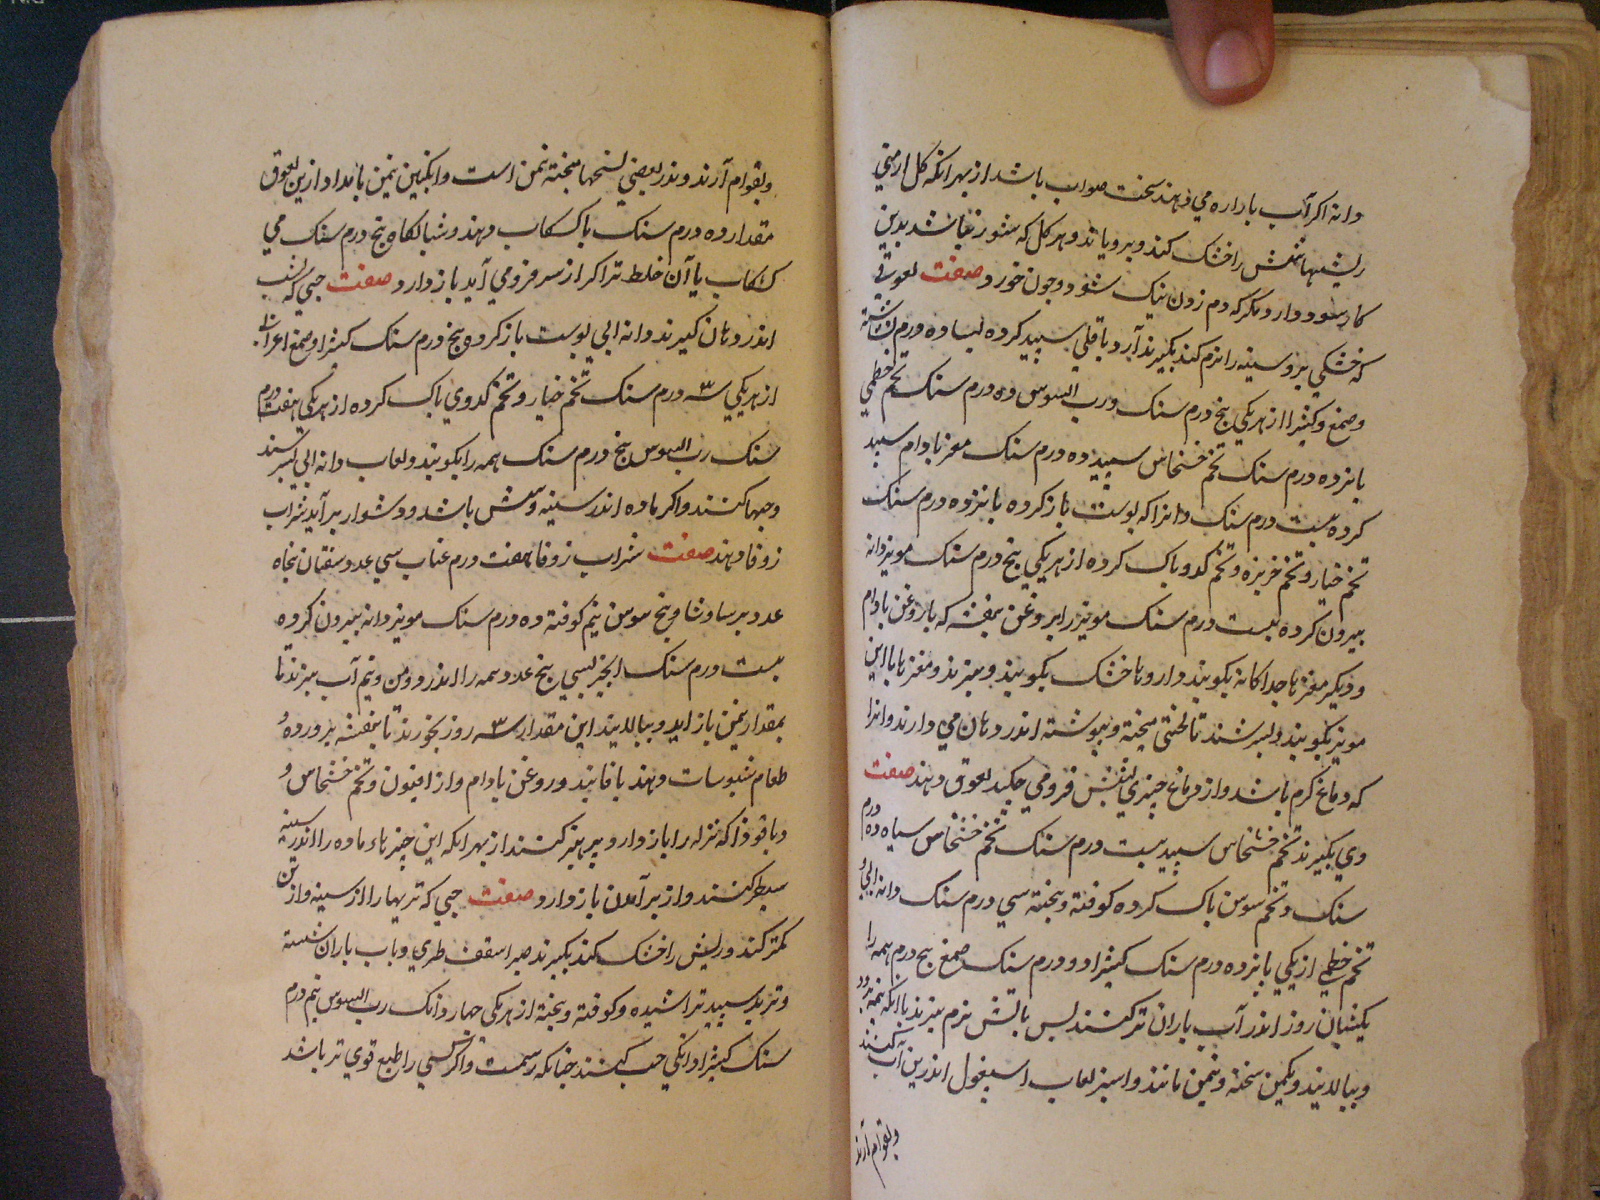 وانه اکر آب باداره می دهند سخت صواب باشد از بهر انکه کل ارمنی
ریشیها شش را خشک کند و برویاند و هر کل که شور نباشد بدین
کار شود و دارو مکر که دم زدن نیک شود و جون خورد صفت لعوقی
که خشکی برو سینه را نرم کند بکیرند آرد باقلی سپید کرده ده درم نشاشته
و صمغ و کثیرا از هر یکی پنج درم سنک و رب السوس ده درم سنک تخم خطمی
بانزده درم سنک تخم خشخاش سپید ده درم سنک مغز بادام سپید
کرده بیست درم سنک دانرا که پوست باز کرده بانزده درم سنک
تخم خیار و تخم خربزه و تخم کدو باک کرده از هر یکی پنج درم سنک مویز دانه
بیرون کرده بیست درم سنک مویز را بروغن بنفشه که با روغن بادام
و دیکر مغزها جداکانه بکوبند و داروها خشک بکوبند و ببزند و مغزها با این
مویز بکوبند و بسرشند تا لختی پخته و پیوشته اندر دهان می دارند و انرا
که دماغ کرم باشد و از دماغ چیزی لشش فرو می چکد لعوق دهند صفت
وی بکیرند تخم خشخاش سپید بیست درم سنک تخم خشخاش سیاه ده درم
سنک و تخم سوسن باک کرده کوفته و بخته سی درم سنک دانه ابی و
تخم خطمی از یکی پانزده درم سنک کثیرا دو درم سنک صمغ پنج درم همه را
یکشبان روز اندر آب باران تر کنند بس باتش نرم ببزند تا انکه نیمه برود
و ببالایند و یکمن پخته و نیمن مانند و اسبز لعاب اسبغول اندرین آب به کنند
و بقوام آرند
و بقوام آرند و ندر بعضی نسخها پخته نیمن است و انکبین نیمن بامداد ازین لعوق
مقدار ده درم سنک باکسکاب دهند و شبانکاه پنج درم سنک می
کسکاب با آن خلط تر اکر از سر فرو می آید باز دارد صفت حبی که شب
اندر دهان کیرند دانه ابی پوست باز کرده پنج درم سنک کثیرا و صمغ اعرابی
از هر یکی سه درم سنک تخم خیار و تخم کدوی باک کرده از هر یکی هفت درم
سنک رب السوس پنج درم سنک همه را بکوبند و لعاب دانه ابی بسرشند
و حبها کنند و اکر ماده اندر سینه و شش باشد و دشوار برآید شراب
زوفا دهند صفت شراب زوفا هفت درم عناب سی عدد سفتان پنجاه
عدد برسیاوشا و پنج سوسن نیم کوفته ده درم سنک مویز دانه بیرون کرده
بیست درم سنک انجیر لبیی پنج عدد همه را اندر دو من و نیم آب ببزند تا
بمقدار نیمن باز اید و ببالایند این مقدار سه روز بخورند تا بنفشه برورده و
طعام سبوسات دهند بافانید و روغن بادام و از افیون و تخم خشخاش و
دیاقوذا که نزله را باز دارد پرهیز کنند از بهر انکه این چیزهاء ماده را اندر سینه
سطبر کنند و از برآمدن باز دارد صفت حبی که تریها را از سینه و ازین
کمتر کند و ریش را خشک کند بکیرند صبر اسقف طری و باب باران شسته
و تربد سپید تراشیده و کوفته و بخته از هر یکی چهار دانک رب السوس نیم درم
سنک کثیرا دانکی حب کنند چنانکه رسمست و اکر کسی را طبع قوی تر باشد